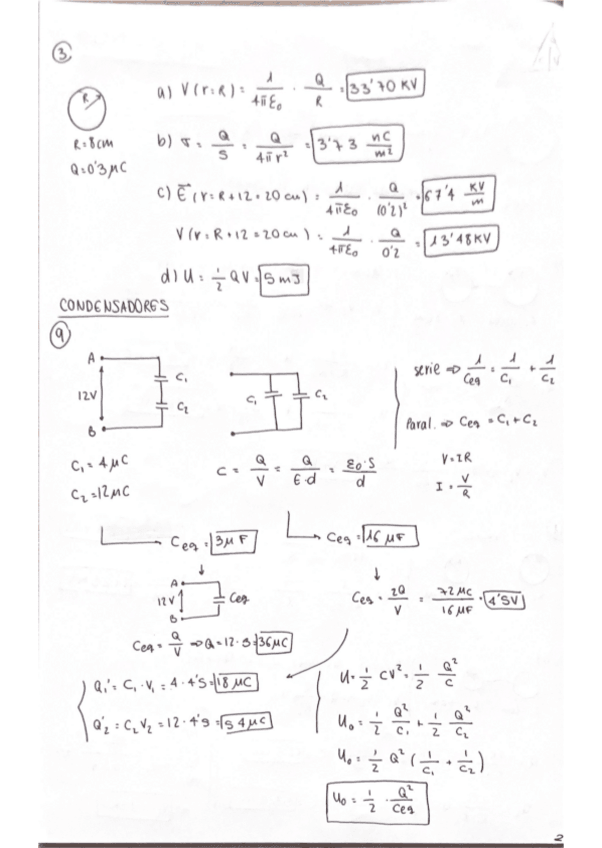 ③
R
R=8cm
Q=0'3μC
a) V(r=R) = 1/4πε₀ · Q/R = 33'70 KV
b) σ = Q/S = Q/4πr² = 3'73 nC/m²
c) E⃗(r=R+12=20cm) = 1/4πε₀ · Q/(0'2)² = 67'4 KV/m
V(r=R+12=20cm) = 1/4πε₀ · Q/0'2 = 13'48KV
d) U = 1/2 QV = 5mJ
CONDENSADORES
⑨
A
12V
B
C₁
C₂
C₁
C₂
serie ⇒ 1/Ceq = 1/C₁ + 1/C₂
Paral. ⇒ Ceq = C₁ + C₂
C₁ = 4μC
C₂ = 12μC
C = Q/V = Q/E·d = ε₀·S/d
V=IR
I = V/R
Ceq = 3μF
Ceq = 16μF
A
12V
B
Ceq
Ceq = 2Q/V = 72μC/16μF = 4'5V
Ceq = Q/V ⇒ Q = 12·3 = 36μC
Q₁' = C₁·V₁ = 4·4'5 = 18μC
Q₂' = C₂V₂ = 12·4'5 = 54μC
U = 1/2 CV² = 1/2 Q²/C
U₀ = 1/2 Q²/C₁ + 1/2 Q²/C₂
U₀ = 1/2 Q² (1/C₁ + 1/C₂)
U₀ = 1/2 · Q²/Ceq
2